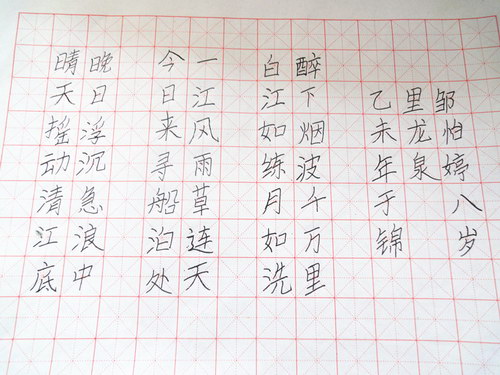 晴天摇动清江底
晚日浮沉急浪中
今日来寻船泊处
一江风雨草连天
白江如练月如洗
醉下烟波千万里
乙未年于锦
里龙泉
邹怡婷八岁